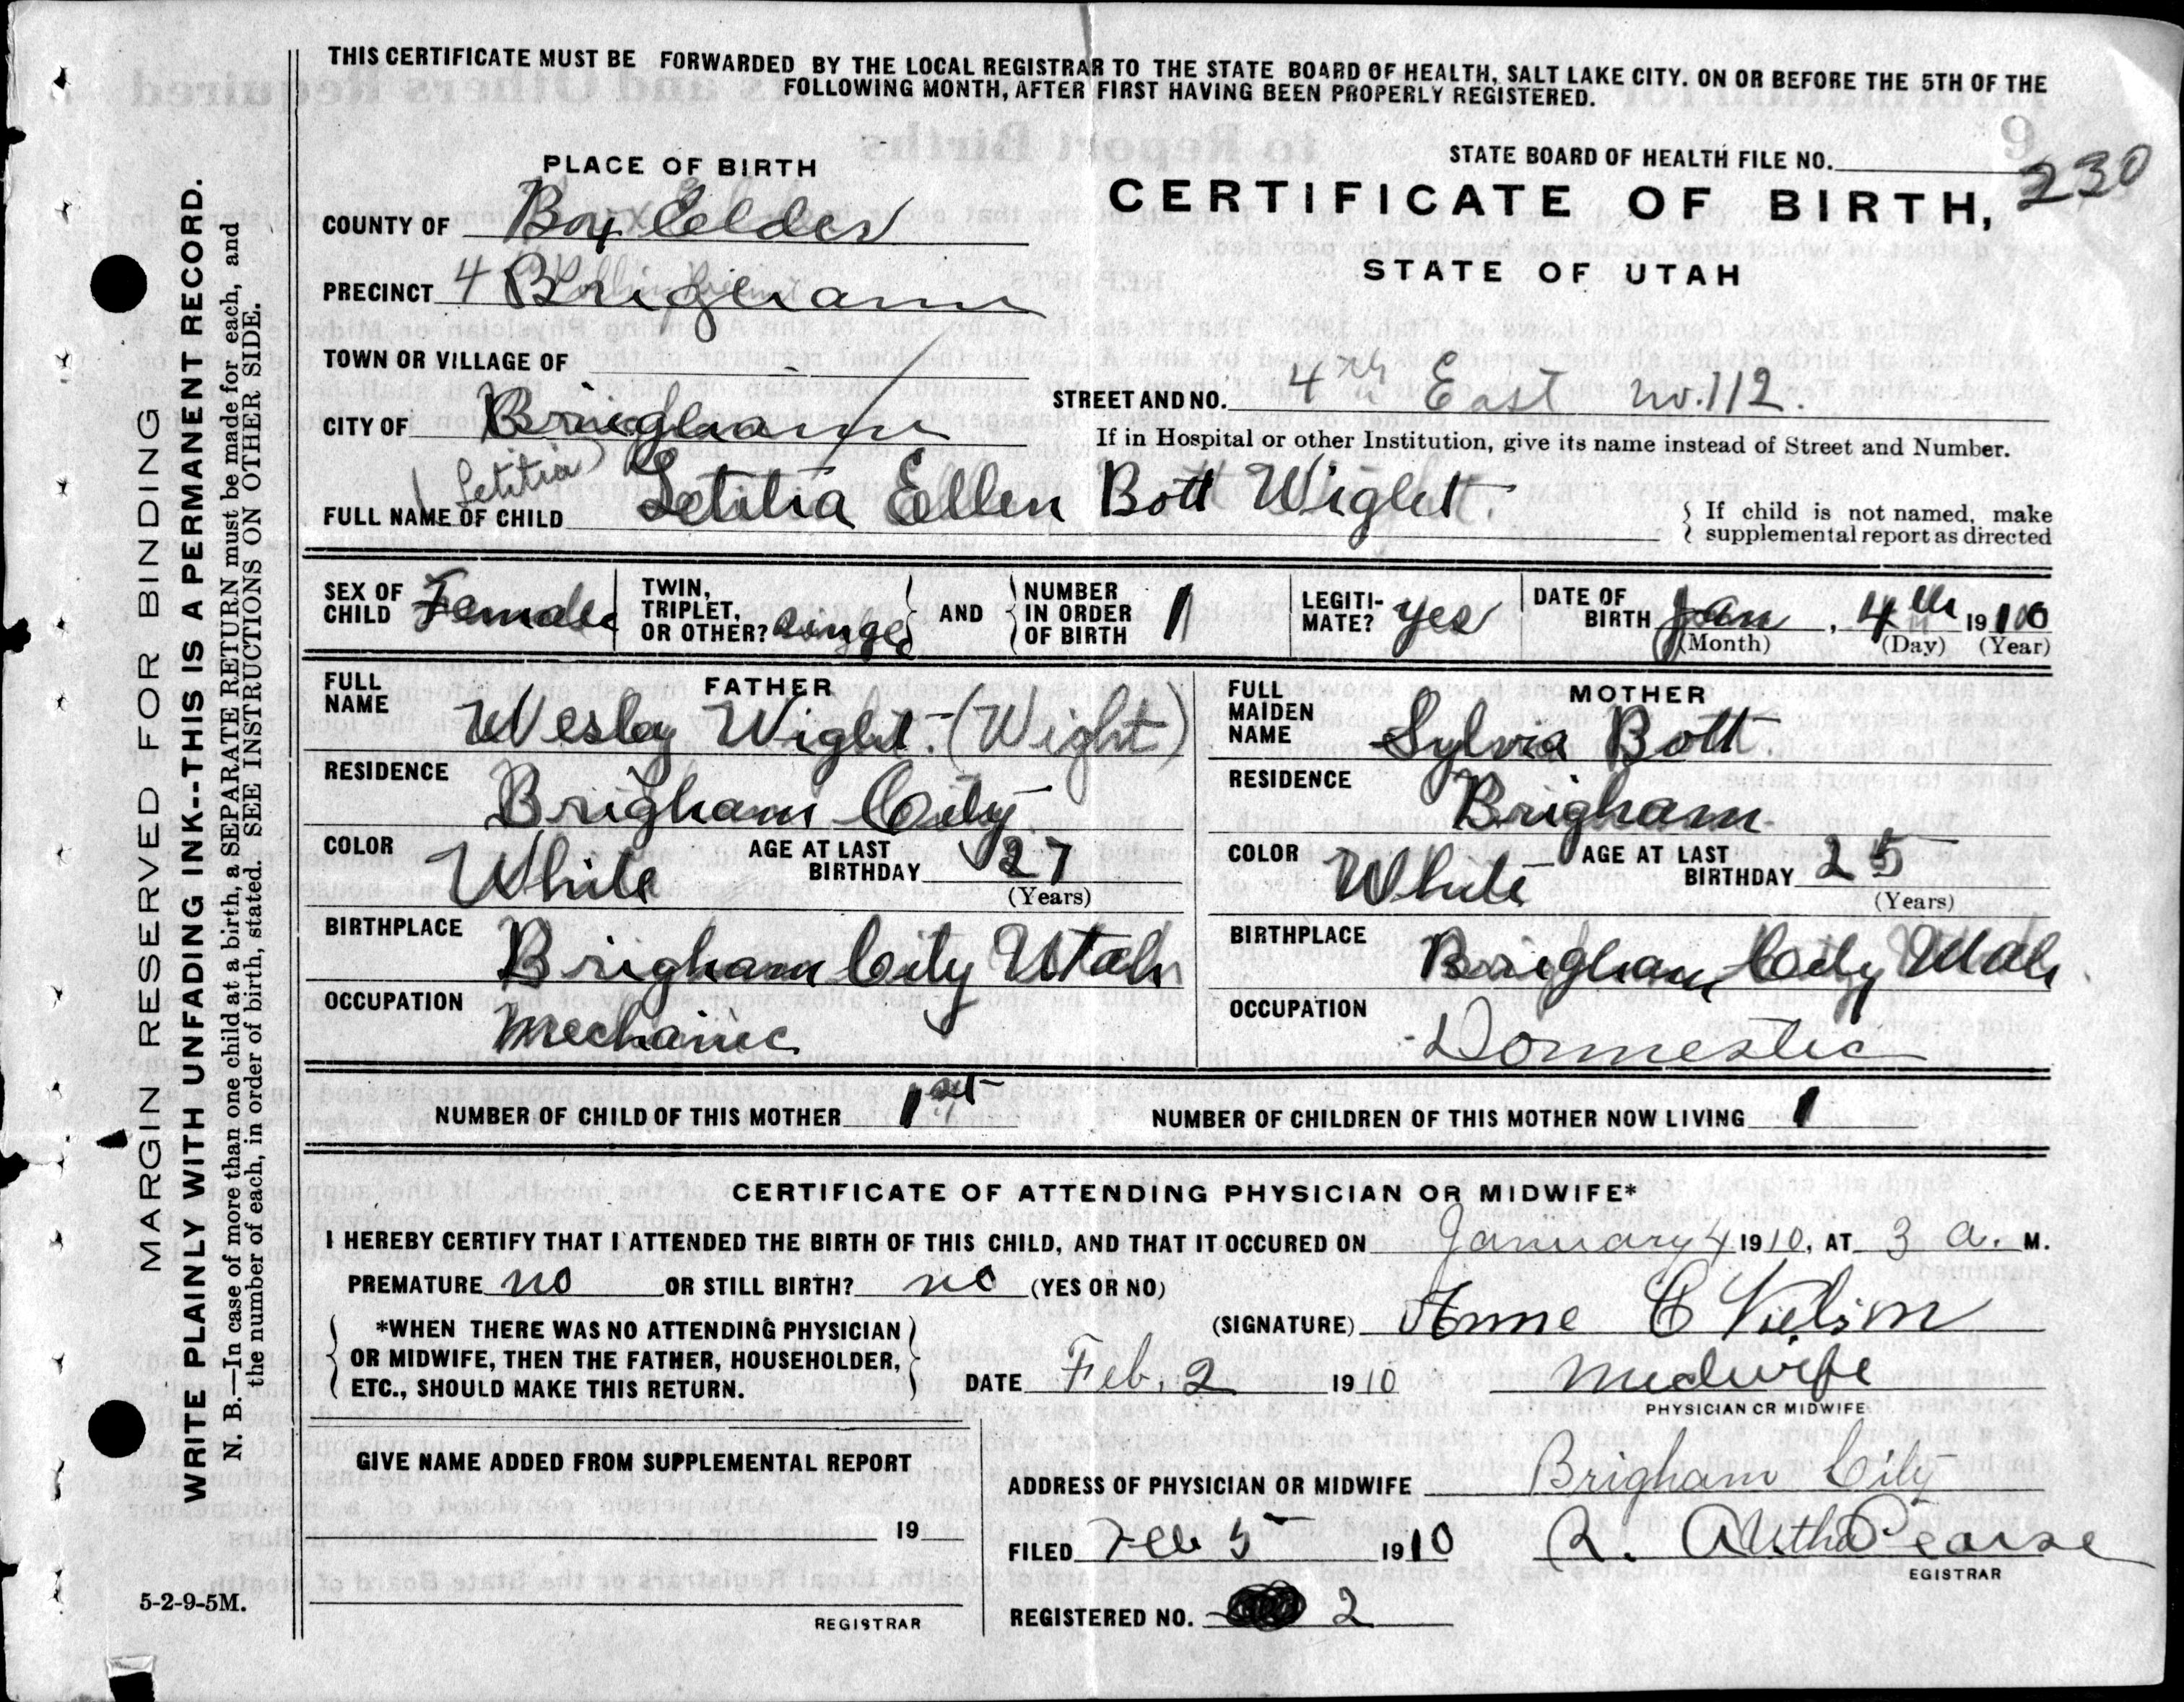 THIS CERTIFICATE MUST BE FORWARDED BY THE LOCAL REGISTRAR TO THE STATE BOARD OF HEALTH, SALT LAKE CITY. ON OR BEFORE THE 5TH OF THE
FOLLOWING MONTH, AFTER FIRST HAVING BEEN PROPERLY REGISTERED.
PLACE OF BIRTH
STATE BOARD OF HEALTH FILE NO. 230
CERTIFICATE OF BIRTH,
STATE OF UTAH
COUNTY OF Box Elder
PRECINCT 4 Brigham
TOWN OR VILLAGE OF
CITY OF Brigham
STREET AND NO. 4th East no. 112.
If in Hospital or other Institution, give its name instead of Street and Number.
(Letitia)
FULL NAME OF CHILD Letitia Ellen Bott Wight.
If child is not named, make
supplemental report as directed
SEX OF CHILD Female
TWIN, TRIPLET, OR OTHER? single
AND
NUMBER IN ORDER OF BIRTH 1
LEGITIMATE? yes
DATE OF BIRTH Jan, 4th 1910
(Month) (Day) (Year)
FATHER
FULL NAME Wesley Wight. (Wight)
RESIDENCE Brigham City
COLOR White
AGE AT LAST BIRTHDAY 27
(Years)
BIRTHPLACE Brigham City Utah
OCCUPATION Mechanic
MOTHER
FULL MAIDEN NAME Sylvia Bott.
RESIDENCE Brigham
COLOR White
AGE AT LAST BIRTHDAY 25
(Years)
BIRTHPLACE Brigham City Utah
OCCUPATION Domestic
NUMBER OF CHILD OF THIS MOTHER 1st
NUMBER OF CHILDREN OF THIS MOTHER NOW LIVING 1
CERTIFICATE OF ATTENDING PHYSICIAN OR MIDWIFE*
I HEREBY CERTIFY THAT I ATTENDED THE BIRTH OF THIS CHILD, AND THAT IT OCCURED ON January 4 1910, AT 3 a. M.
PREMATURE no OR STILL BIRTH? no (YES OR NO)
*WHEN THERE WAS NO ATTENDING PHYSICIAN
OR MIDWIFE, THEN THE FATHER, HOUSEHOLDER,
ETC., SHOULD MAKE THIS RETURN.
(SIGNATURE) Anne C Nielson
DATE Feb. 2 1910
Midwife
PHYSICIAN OR MIDWIFE
GIVE NAME ADDED FROM SUPPLEMENTAL REPORT
19
REGISTRAR
ADDRESS OF PHYSICIAN OR MIDWIFE Brigham City
FILED Feb 5 1910
R. Pearse
EGISTRAR
REGISTERED NO. 2
MARGIN RESERVED FOR BINDING
WRITE PLAINLY WITH UNFADING INK--THIS IS A PERMANENT RECORD.
N. B.—In case of more than one child at a birth, a SEPARATE RETURN must be made for each, and
the number of each, in order of birth, stated. SEE INSTRUCTIONS ON OTHER SIDE.
5-2-9-5M.